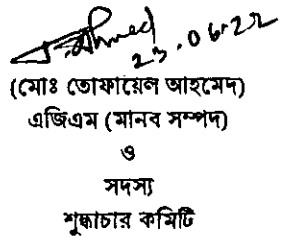 23.06.22
(মোঃ তোফায়েল আহমেদ)
এজিএম (মানব সম্পদ)
ও
সদস্য
শুদ্ধাচার কমিটি